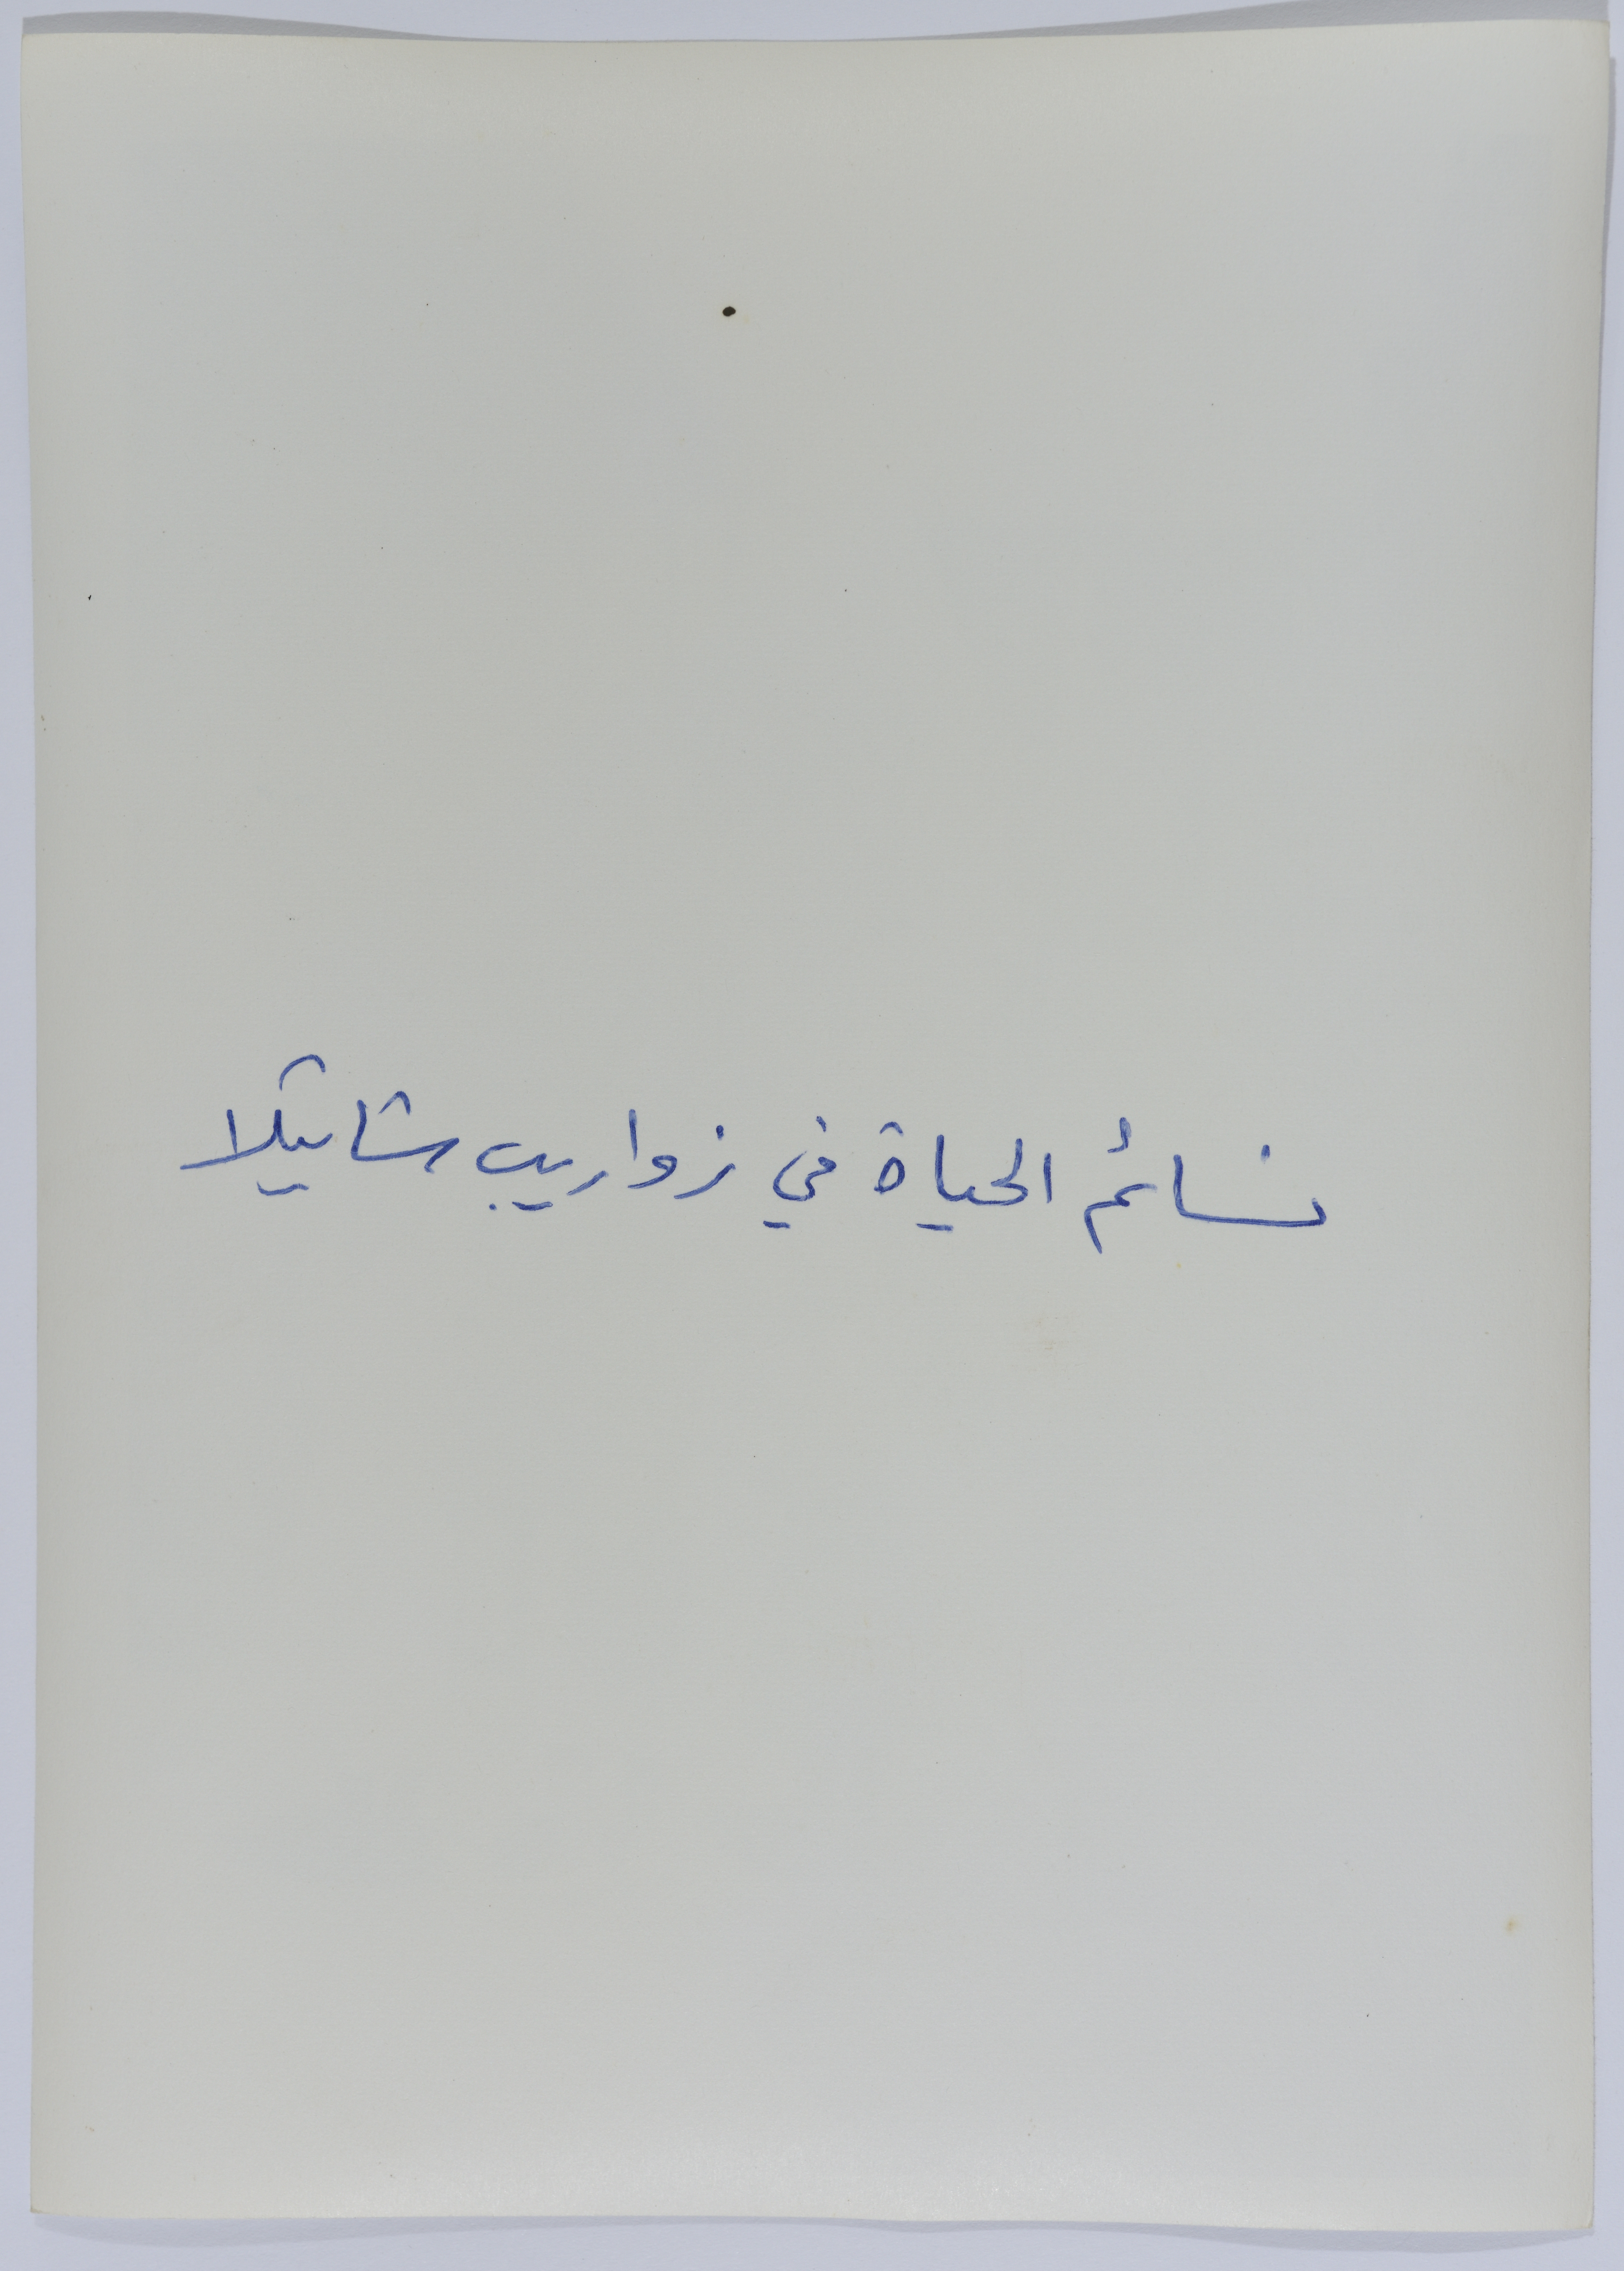 نسائم الحياة في زواريب شاتيلا